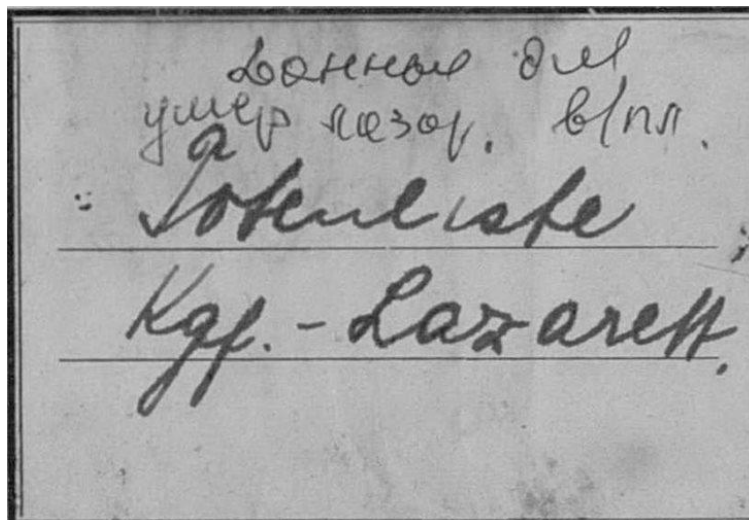 Данные для
умер лазар. в/пл.
Totenliste
Kgf.-Lazarett.